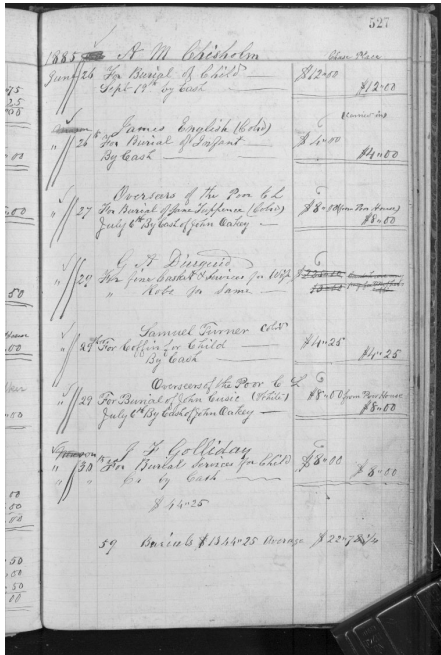 527
1885 A M Chisholm Chase Place
June 26 For Burial of Child $12"00
Sept 19th by Cash $12"00
James English (Cold)
" 26th For Burial of Infant $4"00
By Cash $4"00
Overseers of the Poor C L
" 27 For Burial of Jane (Cold) $8"00 (from Poor House)
July 6th By Cash of John Oakey $8"00
G A
" 29 For fine Casket & Services for Wife
" Robe for Same
Samuel Turner Cold
" 29th For Coffin for Child $4"25
By Cash $4"25
Overseers of the Poor C L
" 29 For Burial of John Cusic (White) $8"00 from Poor House
July 6th By Cash of John Oakey $8"00
J F Golliday
" 30th For Burial Services for Child $8"00
" " Cr by Cash $8"00
$44"25
59 Burials $1344"25 Average $22"78
75
25
00
"00
50
"00
00
00
00
50
"50
"50
00